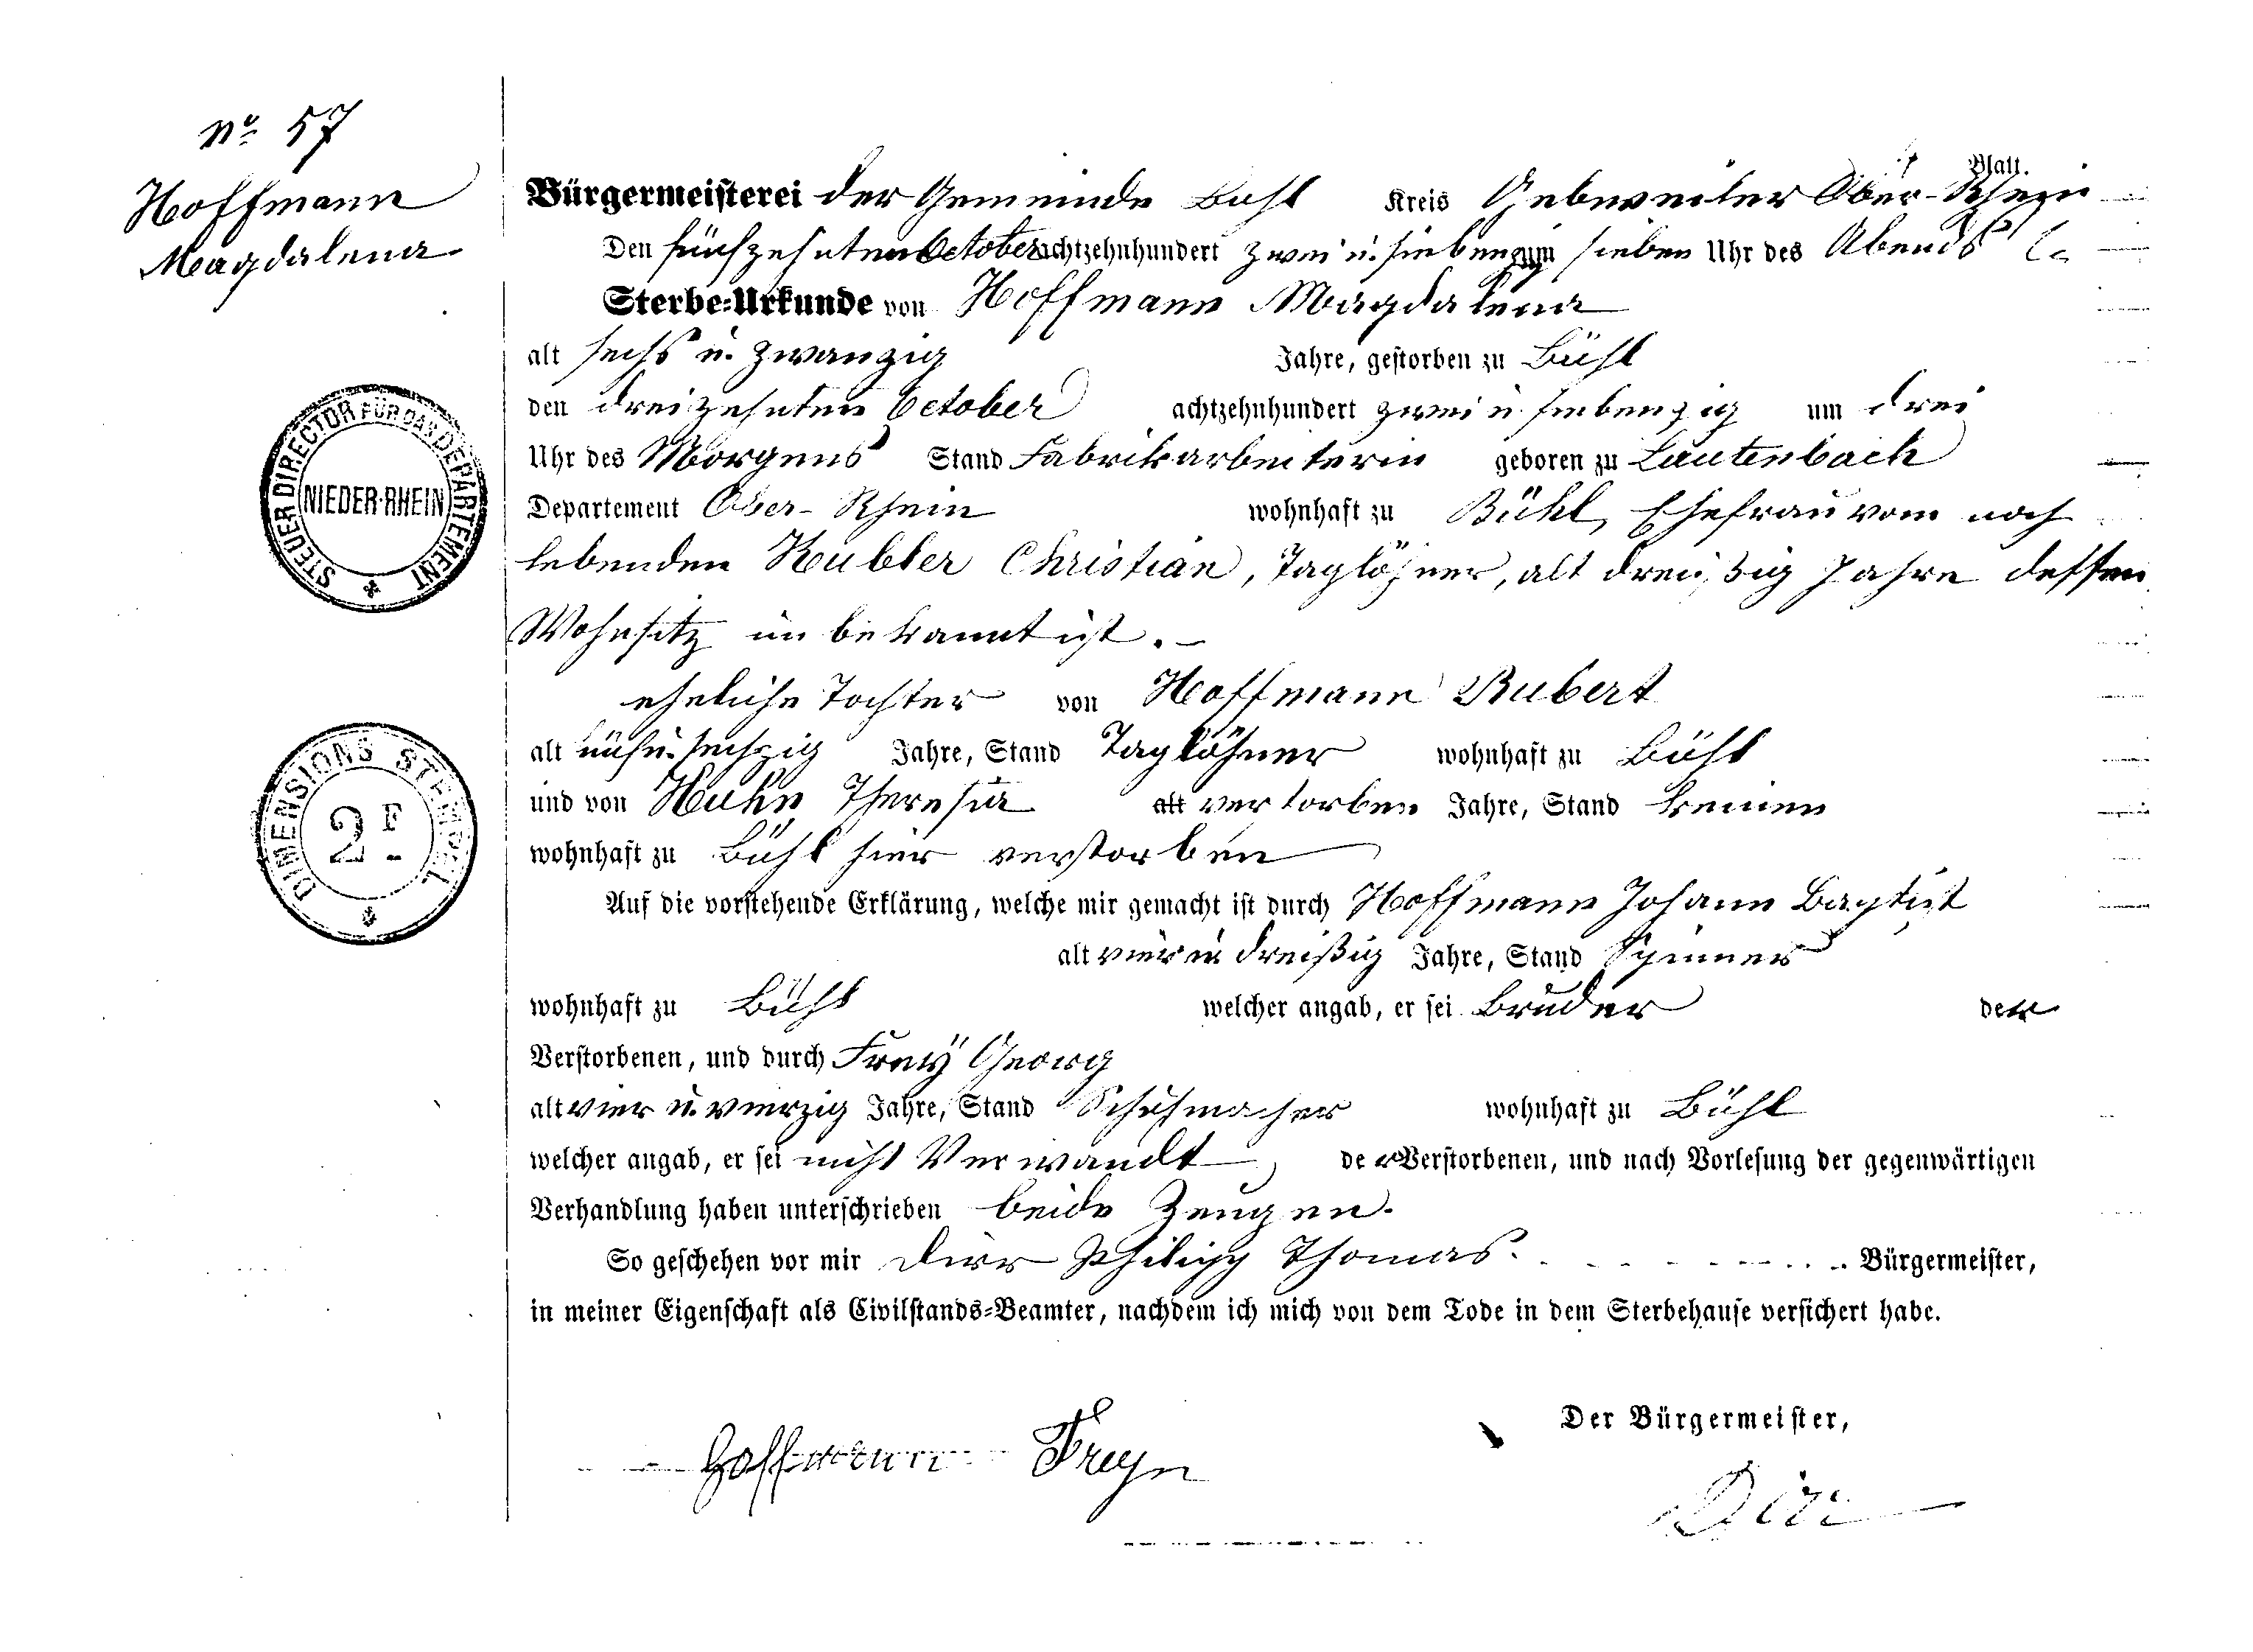 No 57
Hoffmann
Magdalena
Blatt.
Bürgermeisterei der Gemeinde Bühl Kreis Gebweiler Ober-Rhein
Den fünfzehnten October achtzehnhundert zwei u. siebenzig um sieben Uhr des Abends
Sterbe-Urkunde von Hoffmann Magdalena
alt sechs u. zwanzig Jahre, gestorben zu Bühl
den dreizehnten October achtzehnhundert zwei u. siebenzig um drei
Uhr des Morgens Stand Fabrikarbeiterin geboren zu Lautenbach
Departement Ober-Rhein wohnhaft zu Bühl, Ehefrau vom noch
lebenden Kubler Christian, Taglöhner, alt dreißig Jahre dessen
Wohnsitz unbekannt ist.
eheliche Tochter von Hoffmann Rubert
alt sechzig Jahre, Stand Taglöhner wohnhaft zu Bühl
und von Huhn Theresia alt verstorben Jahre, Stand keinen
wohnhaft zu Bühl hier verstorben
Auf die vorstehende Erklärung, welche mir gemacht ist durch Hoffmann Johann Baptist
alt vier u. dreißig Jahre, Stand Spinner
wohnhaft zu Bühl welcher angab, er sei Bruder der
Verstorbenen, und durch Frey Georg
alt vier u. vierzig Jahre, Stand Schuhmacher wohnhaft zu Bühl
welcher angab, er sei nicht Verwandt der Verstorbenen, und nach Vorlesung der gegenwärtigen
Verhandlung haben unterschrieben beide Zeugen.
So geschehen vor mir Dirr Philipp Thomas. Bürgermeister,
in meiner Eigenschaft als Civilstands-Beamter, nachdem ich mich von dem Tode in dem Sterbehause versichert habe.
Der Bürgermeister,
Hoffmann Frey
Dirr
STEUER DIRECTOR FÜR DAS DEPARTEMENT
NIEDER-RHEIN
DIMENSIONS STEMPEL
2 F